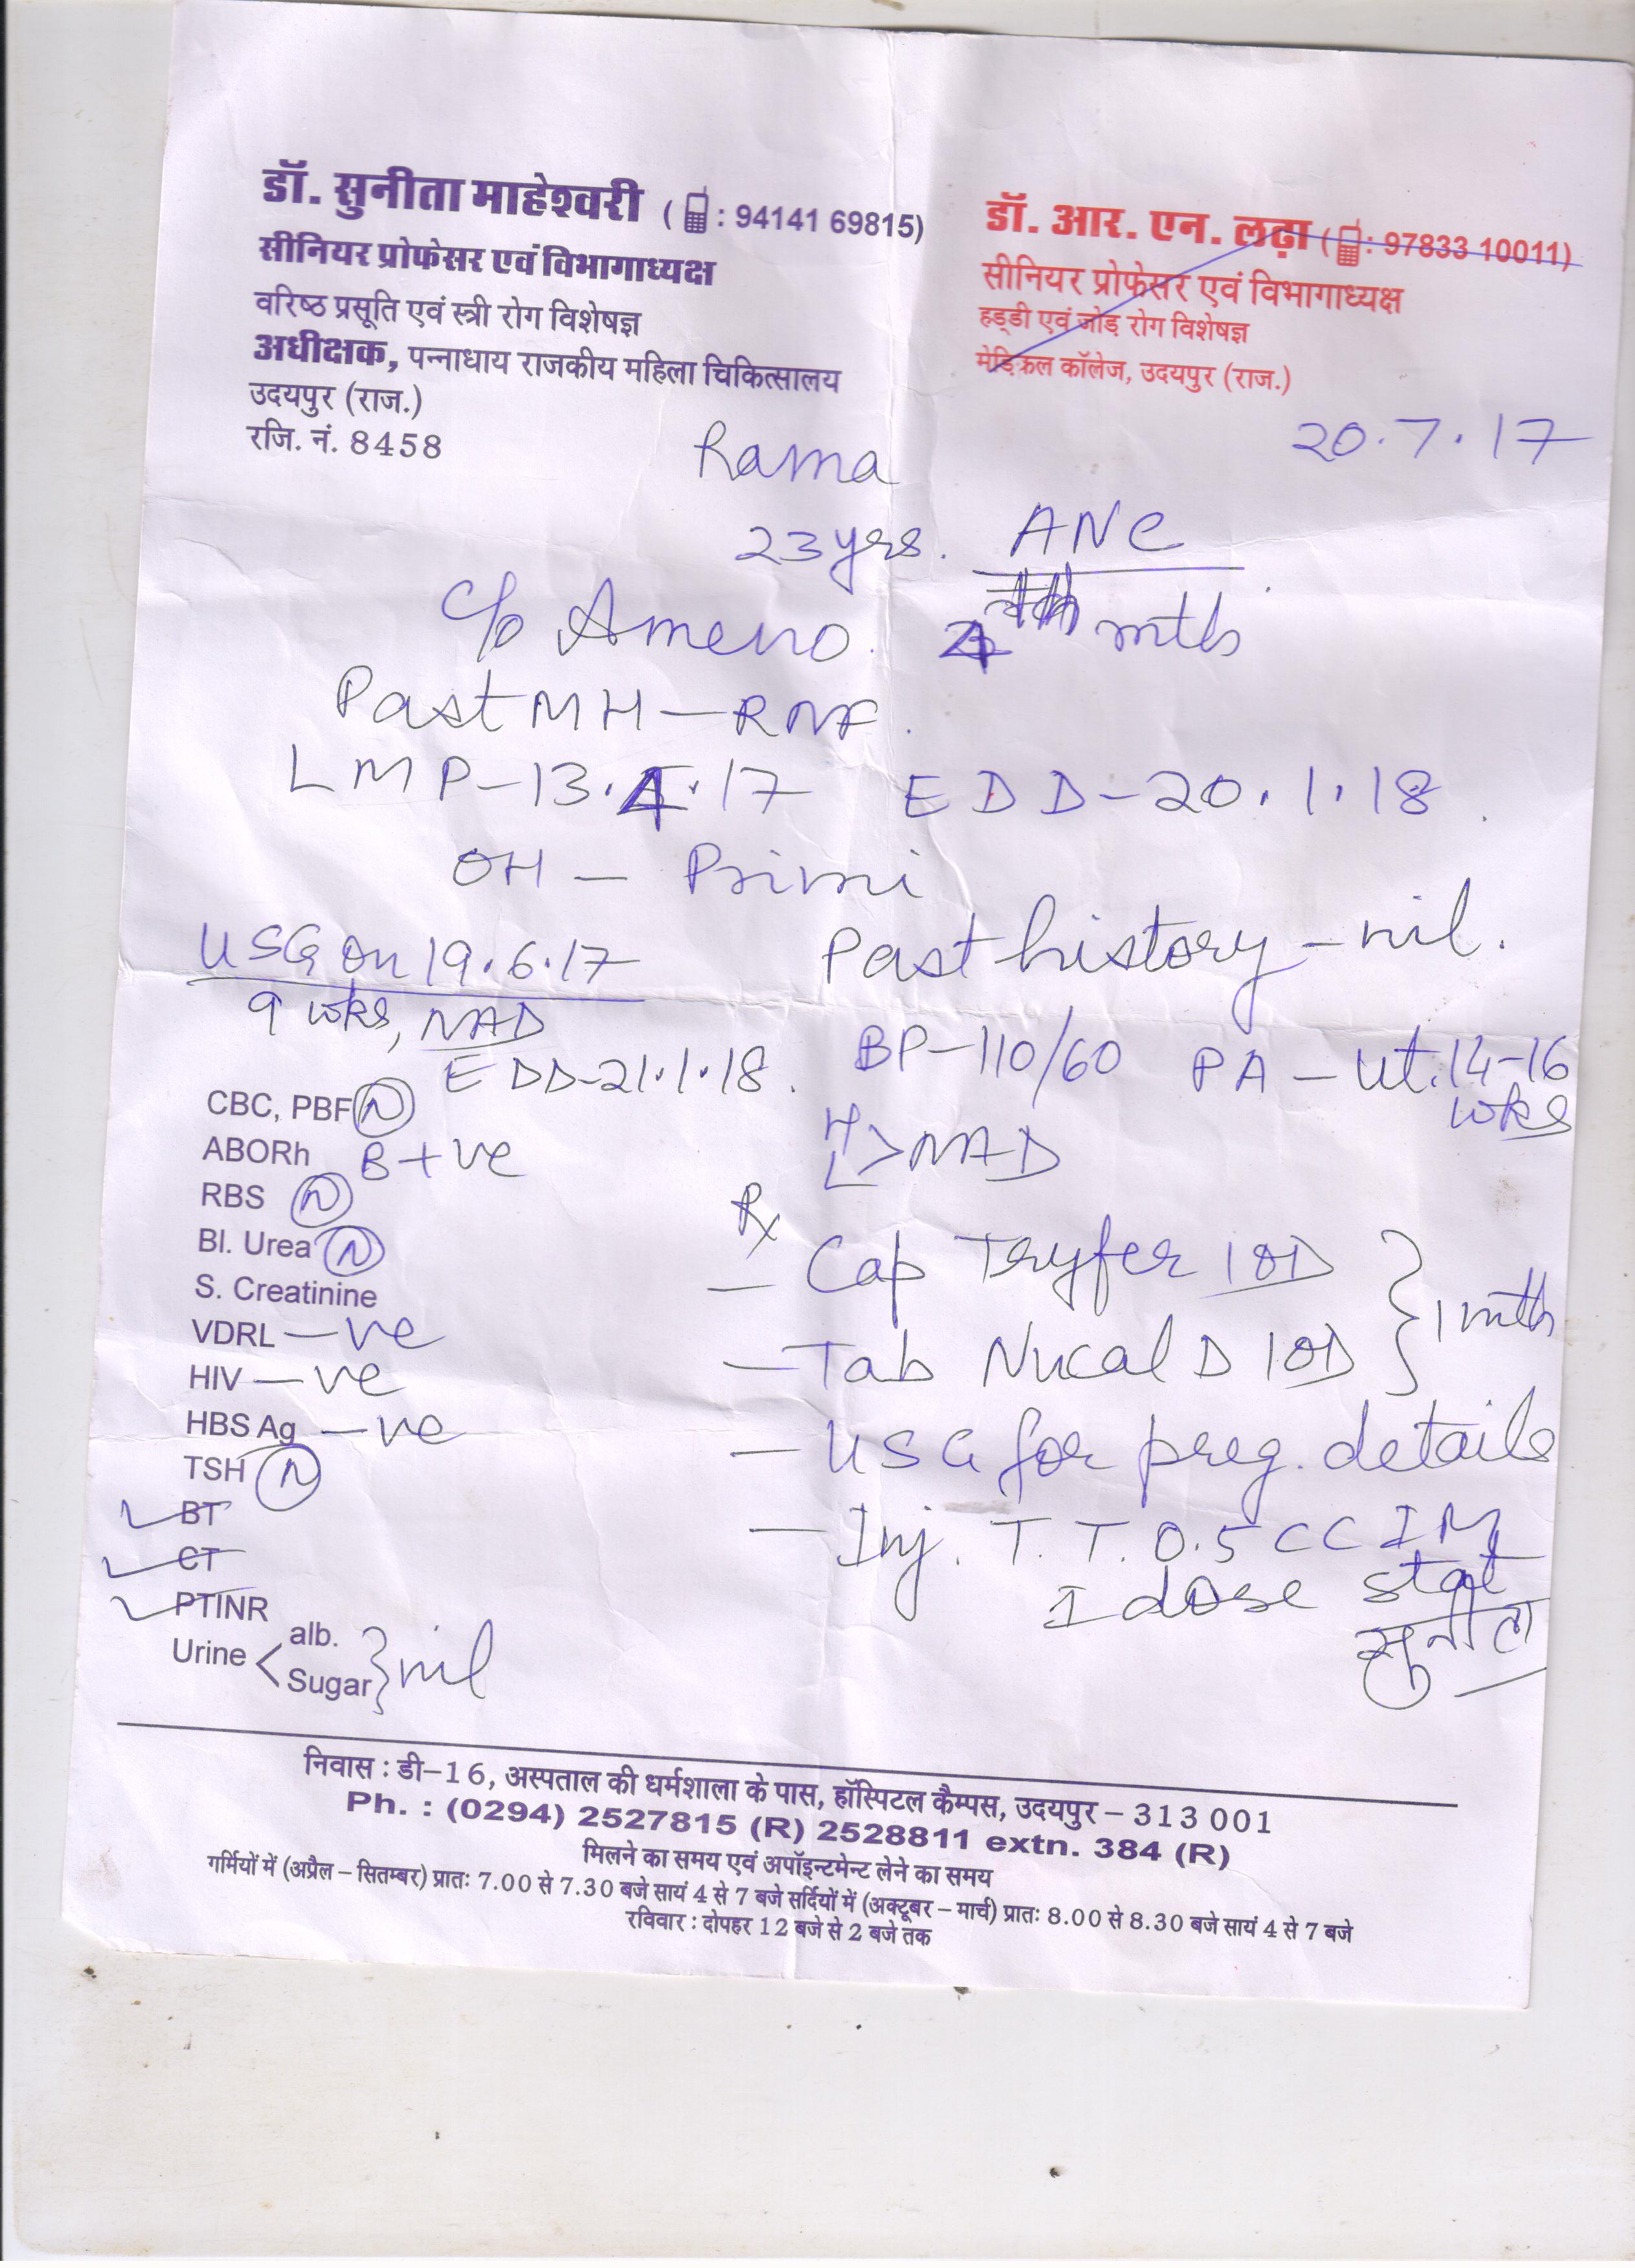 डॉ. सुनीता माहेश्वरी ( : 94141 69815)
सीनियर प्रोफेसर एवं विभागाध्यक्ष
वरिष्ठ प्रसूति एवं स्त्री रोग विशेषज्ञ
अधीक्षक, पन्नाधाय राजकीय महिला चिकित्सालय
उदयपुर (राज.)
रजि. नं. 8458
डॉ. आर. एन. लढ़ा ( : 97833 10011)
सीनियर प्रोफेसर एवं विभागाध्यक्ष
हड्डी एवं जोड़ रोग विशेषज्ञ
मेडिकल कॉलेज, उदयपुर (राज.)
20.7.17
Rama
23yrs. ANC
c/o Ameno. mth
Past MH - RNF.
LMP-13.4.17 EDD-20.1.18
OH - Primi
USG on 19.6.17
9 wks, NAD
EDD-21.1.18.
Past history - nil.
BP-110/60 PA - ut. 14-16 wks
H
L > NAD
CBC, PBF N
ABORh B +ve
RBS N
Bl. Urea N
S. Creatinine
VDRL -ve
HIV -ve
HBS Ag -ve
TSH N
BT
CT
PTINR
Urine < alb.
Sugar } nil
Rx
- Cap Tryfer 1 OD
- Tab Nucal D 1 OD } 1 mth
- USG for preg. details
- Inj. T.T. 0.5 CC IM
I dose stat
सुनीता
निवास : डी-16, अस्पताल की धर्मशाला के पास, हॉस्पिटल कैम्पस, उदयपुर - 313 001
Ph. : (0294) 2527815 (R) 2528811 extn. 384 (R)
मिलने का समय एवं अपॉइन्टमेन्ट लेने का समय
गर्मियों में (अप्रैल - सितम्बर) प्रातः 7.00 से 7.30 बजे सायं 4 से 7 बजे सर्दियों में (अक्टूबर - मार्च) प्रातः 8.00 से 8.30 बजे सायं 4 से 7 बजे
रविवार : दोपहर 12 बजे से 2 बजे तक